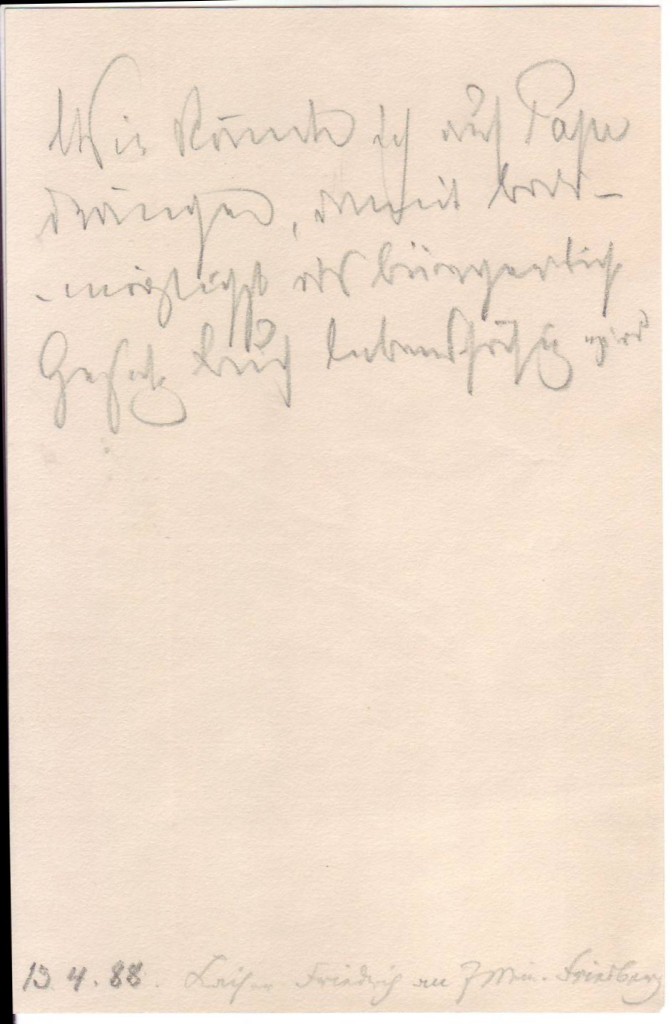 Wie könnte ich auf Pape
drängen, damit bald-
-möglichst das bürgerlich
Gesetz Buch lebensfähig wird
13.4.88. Kaiser Friedrich an J Min. Friedberg